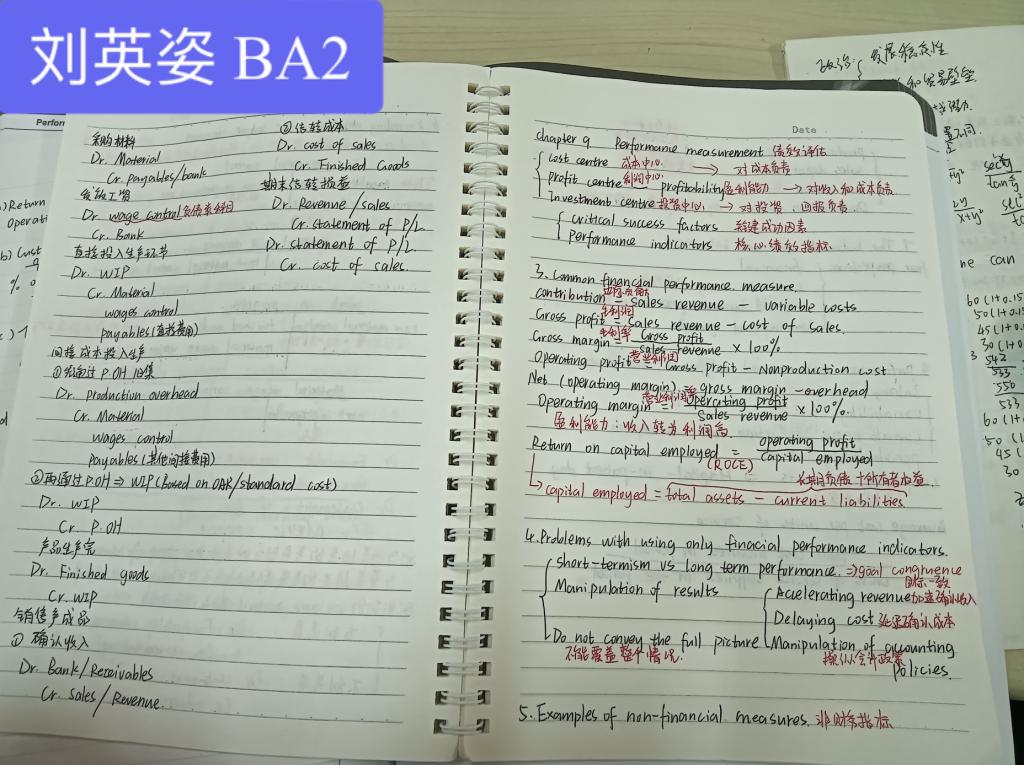 刘英姿 BA2
Perform
采购材料
Dr. Material
Cr. payables/bank
发放工资
Dr. wage control 负债类科目
Cr. Bank
直接投入生产环节
Dr. WIP
Cr. Material
wages control
payables (直接费用)
间接成本投入生产
①先通过 P.OH 归集
Dr. production overhead
Cr. Material
wages control
payables (其他间接费用)
②再通过 P.OH ⇒ WIP (Based on OAR/standard cost)
Dr. WIP
Cr. P.OH
产品生产完
Dr. Finished goods
Cr. WIP
销售产成品
① 确认收入
Dr. Bank/Receivables
Cr. Sales/Revenue.
② 结转成本
Dr. cost of sales
Cr. Finished Goods
期末结转损益
Dr. Revenue/sales
Cr. statement of P/L
Dr. statement of P/L
Cr. cost of sales.
Date
chapter 9 Performance measurement 绩效评估
cost centre 成本中心 → 对成本负责
profit centre 利润中心 profitability 盈利能力 → 对收入和成本负责
Investment centre 投资中心 → 对投资、回报负责
critical success factors 关键成功因素
performance indicators 核心绩效指标
3. Common financial performance measure.
contribution 边际贡献 = sales revenue - variable costs
Gross profit 毛利润 = sales revenue - cost of sales.
Gross margin 毛利率 = Gross profit / sales revenue × 100%
Operating profit 营业利润 = Gross profit - Nonproduction cost
Net (operating margin) = gross margin - overhead
Operating margin 营业利润率 = operating profit / Sales revenue × 100%.
盈利能力:收入转为利润高.
Return on capital employed = operating profit / capital employed
(ROCE)
长期负债+所有者权益
capital employed = total assets - current liabilities
4. Problems with using only finacial performance indicators.
short-termism vs long term performance. ⇒ goal congruence
目标一致
Manipulation of results
Accelerating revenue 加速确认收入
Delaying cost 延迟确认成本
Do not convey the full picture
不能覆盖整个情况.
Manipulation of accounting
policies.
5. Examples of non-financial measures. 非财务指标
政治:
发展稳定性